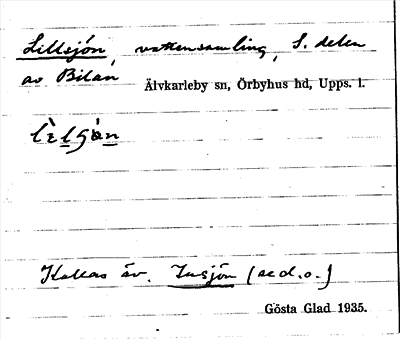 Lillsjön, vattensamling, S. delen
av Bilan
Älvkarleby sn, Örbyhus hd, Upps. l.
Kallas äv. Insjön (se d. o.)
Gösta Glad 1935.